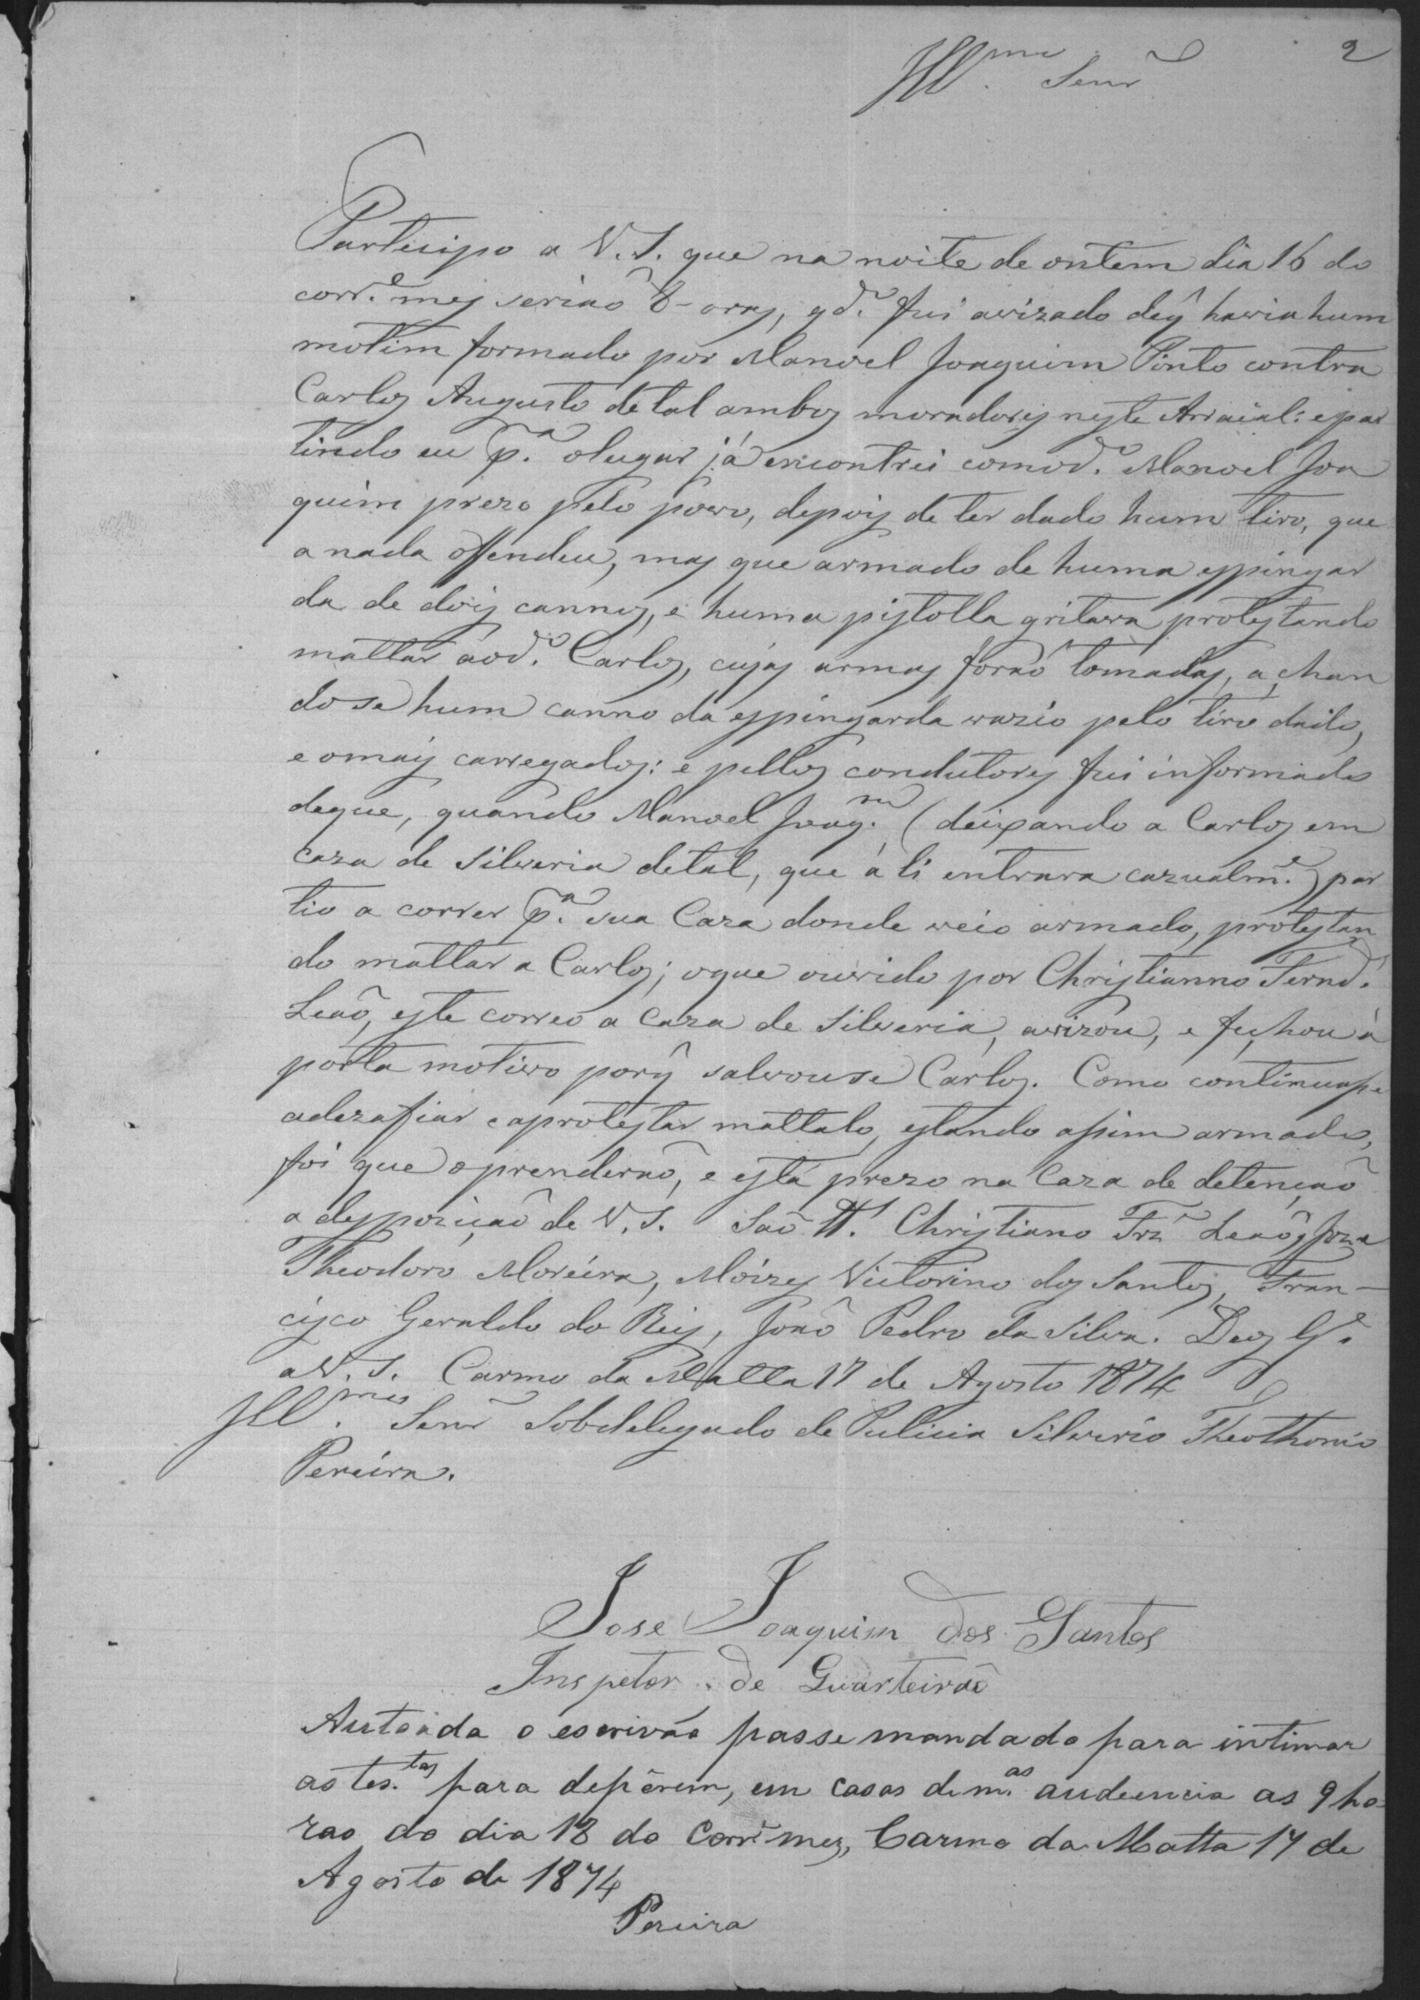 2
Illmo. Senr
Participo a V. S. que na noite de ontem dia 16 do
corre. mes seriaõ 8 - oras, qdo. fui avizado deq̃ havia hum
motim formado por Manoel Joaquim Pinto contra
Carlos Augusto detal ambos moradores neste Arraial: epar
tindo eu pa. olugar já encontrei comodo. Manoel Joa
quim prezo pelo povo, depois de ter dado hum tiro, que
a nada offendeu, mas que armado de huma esping̃ar
da de dois cannos, e huma pistolla gritava protestando
mattar áodo. Carlos, cujas armas foraõ tomadas, açhan
dose hum canno da espingarda vazio pelo tiro dado,
e omais carregados: e pellos condutores fui informado
deque, quando Manoel Joaqm. (deixando a Carlos em
caza de Silveria detal, que á li entrara cazualme.) par
tio a correr pa. sua Caza donde veio armado, protestan
do mattar a Carlos; oque ouvido por Christianno Fernd.
Leaõ, este correo a caza de Silveria, avizou, e feçhou á
porta motivo porq̃ salvouse Carlos. Como continuasse
adezafiar eaprotestar mattalo, estando assim armado,
foi que oprenderaõ, e está prezo na Caza de detençaõ
a despoziçaõ de V. S. Saõ TT. Christiano Frz̃ Leaõ, José
Theodoro Moreira, Moizes Victorino dos Santos, Fran-
cisco Geraldo do Reis, Joaõ Pedro da Silva. Deos Ge.
a V. S. Carmo da Matta 17 de Agosto 1874
Illmo. Senr Sobdelegado de Pulicia Silverio Theothonio
Pereira.
Jose Joaquim dos Santos
Inspetor de Quarteiraõ
Autoada o escrivão passe mandado para intimar
as tes.tas para depôrem, em casas de m.as audiencia as 9 ho
ras do dia 18 do Corre mez, Carmo da Matta 17 de
Agosto de 1874
Pereira